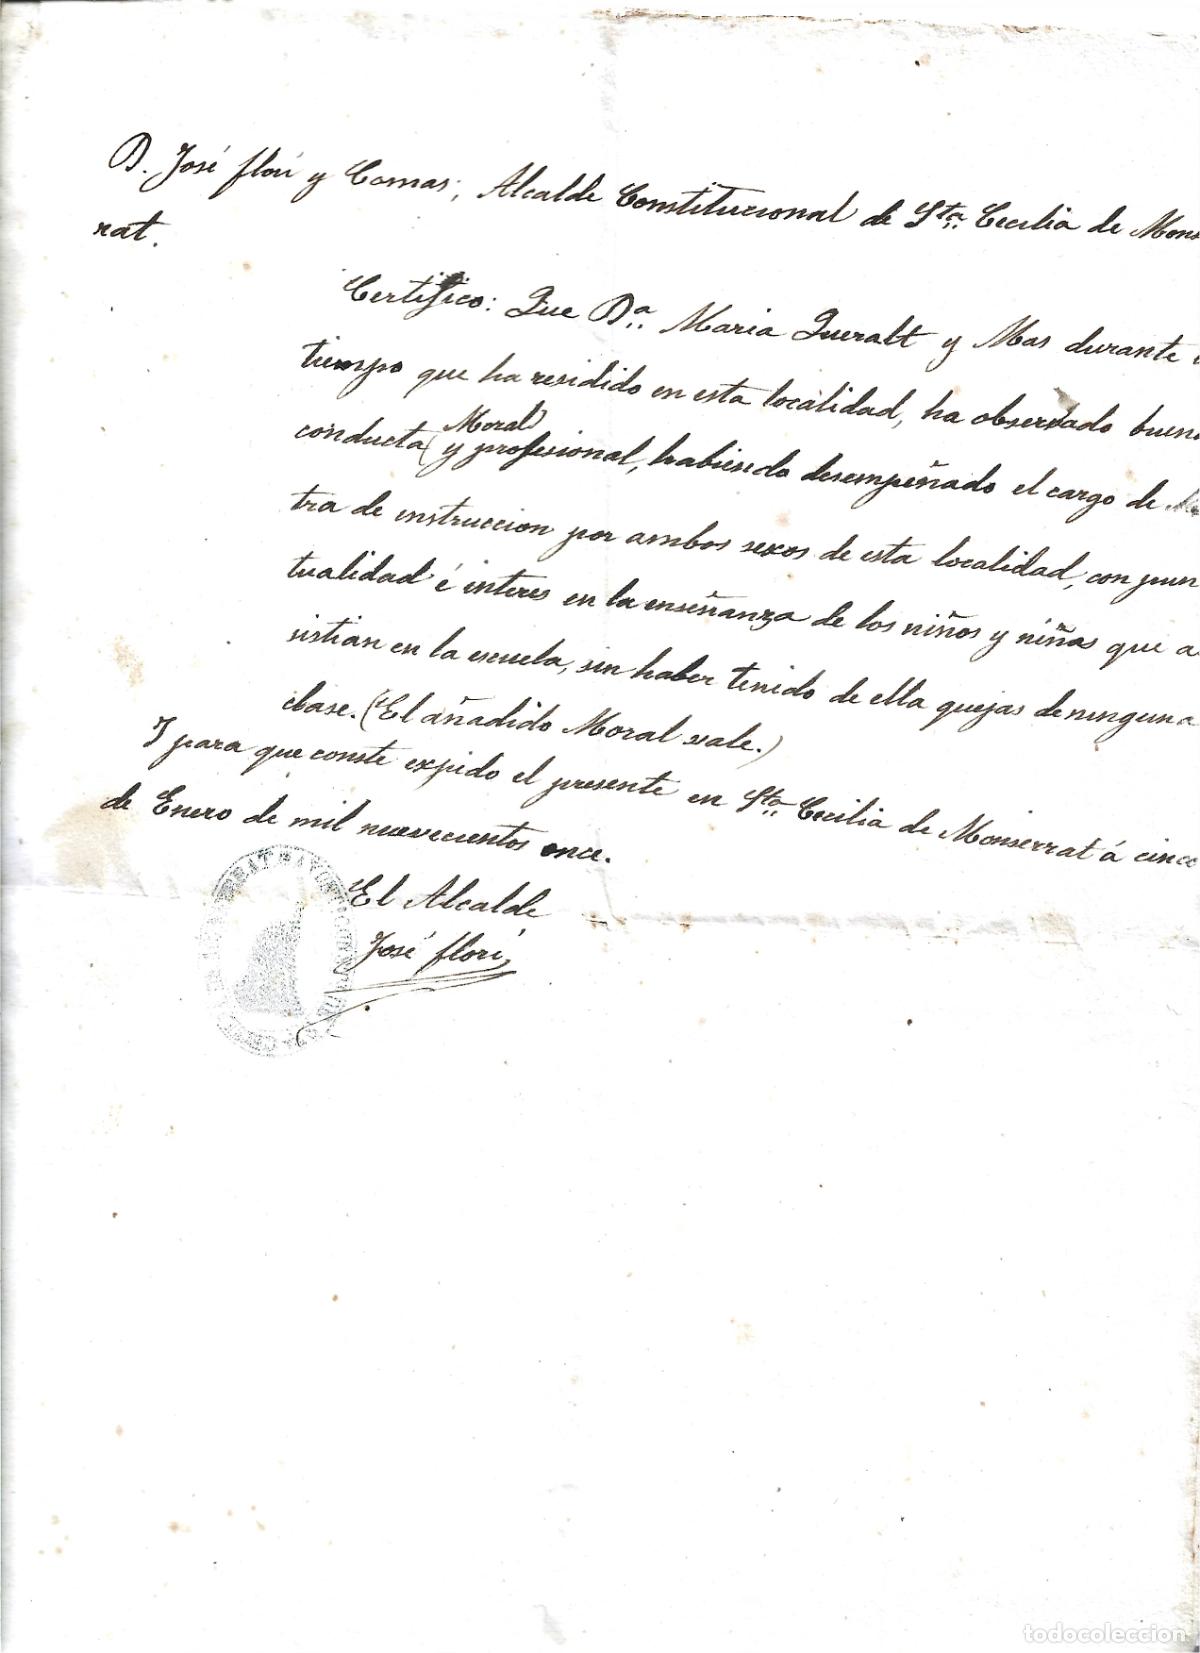 D. José Florí y Comas, Alcalde Constitucional de Sta. Cecilia de Mons
rat.
Certifico: Que Da. Maria Queralt y Mas durante
tiempo que ha residido en esta localidad, ha observado buen
Moral
conducta ( y profesional, habiendo desempeñado el cargo de
tra de instruccion por ambos sexos de esta localidad, con pun
tualidad é interes en la enseñanza de los niños y niñas que a
sistian en la escuela, sin haber tenido de ella quejas de ninguna
clase. (El añadido Moral vale.)
Y para que conste expido el presente en Sta. Cecilia de Monserrat á cinco
de Enero de mil nuevecientos once.
El Alcalde
José Florí
todocoleccion